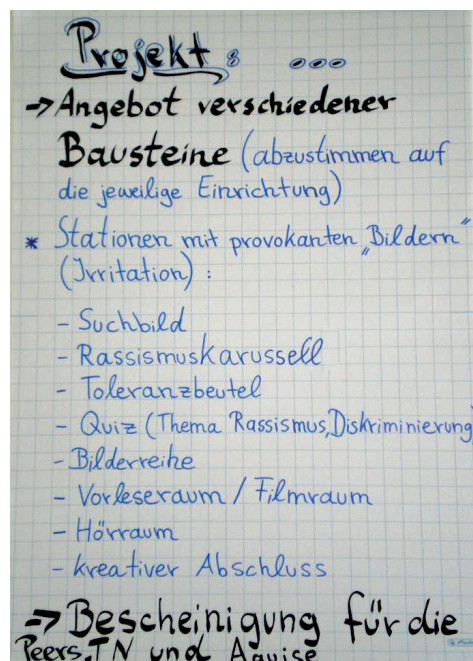 Projekt: ...
→ Angebot verschiedener
Bausteine (abzustimmen auf
die jeweilige Einrichtung)
* Stationen mit provokanten „Bildern"
(Irritation) :
- Suchbild
- Rassismuskarussell
- Toleranzbeutel
- Quiz (Thema Rassismus, Diskriminierung
- Bilderreihe
- Vorleseraum / Filmraum
- Hörraum
- kreativer Abschluss
→ Bescheinigung für die
Peers, TN und Aquise